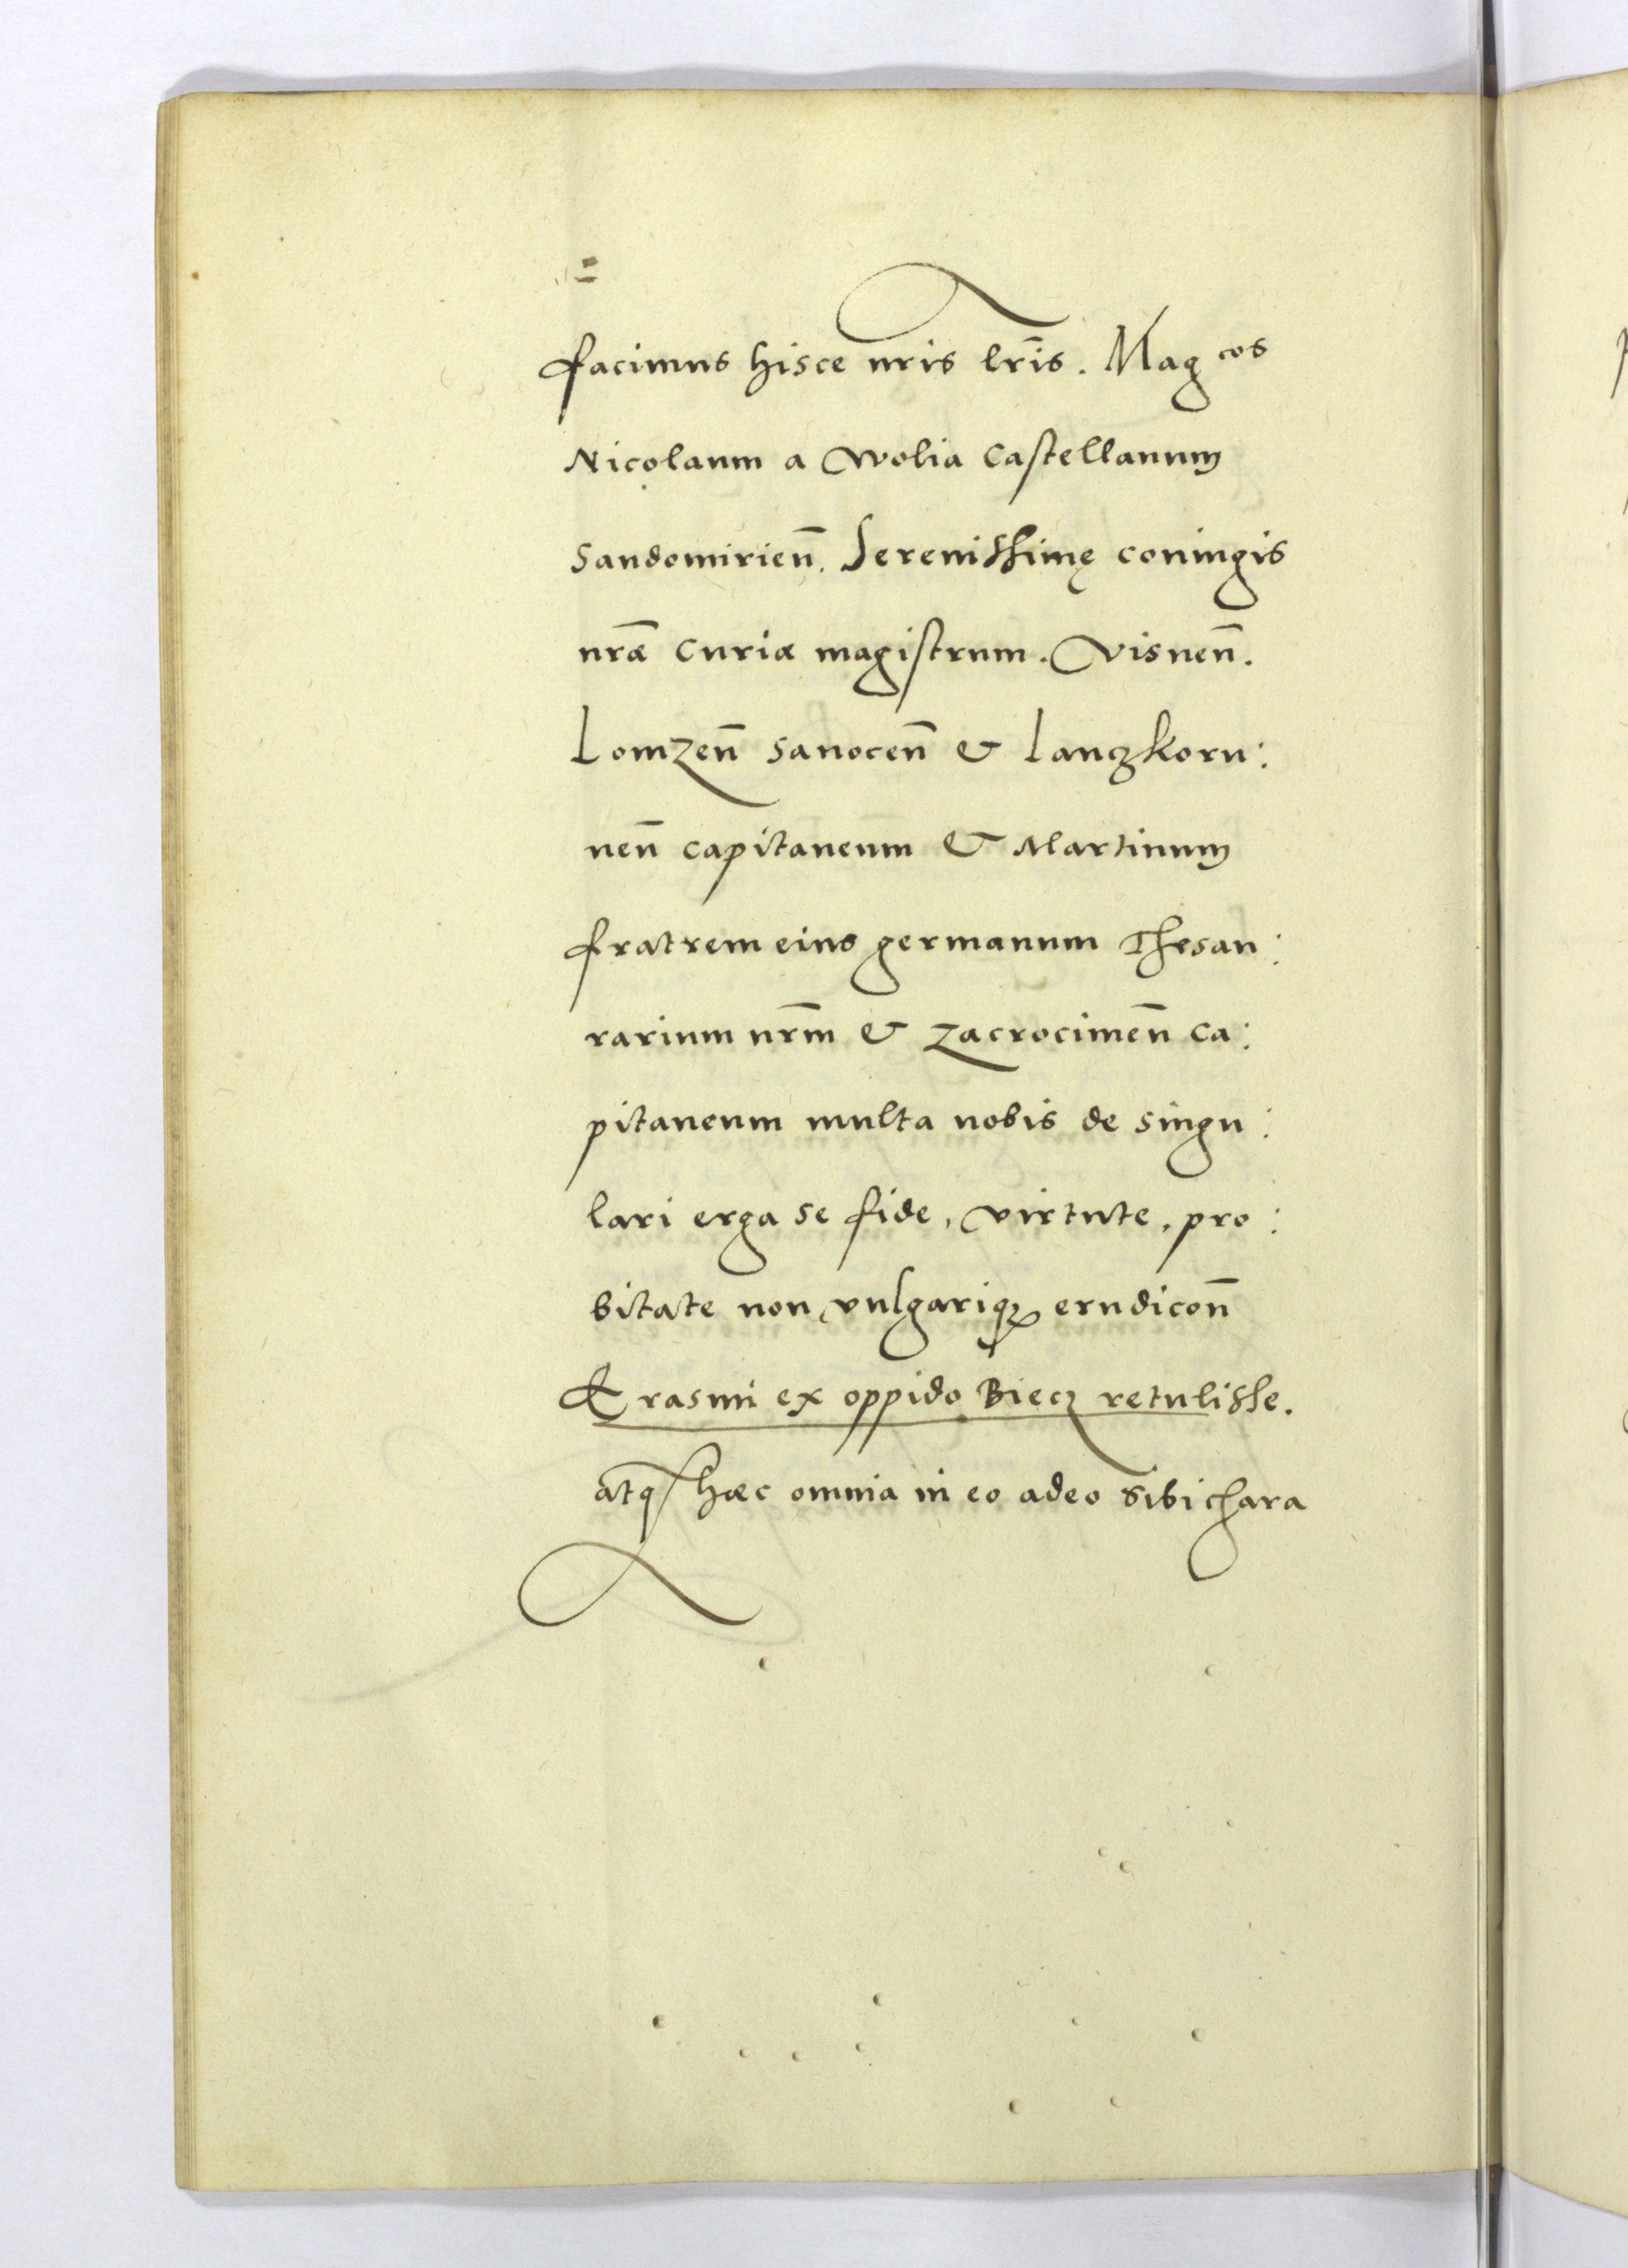 facimus hisce nr̃is lr̃is. Mag^cos
Nicolaum a Wolia Castellanum
Sandomirien̄. Serenissimę coniugis
nr̃æ Curiæ magistrum. Visnen̄.
Lomzen̄ Sanocen̄ & Lanczkoru:
nen̄ capitaneum & Martinum
fratrem eius germanum Thesau:
rarium nr̃m & Zacrocimen̄ ca:
pitaneum multa nobis de singu:
lari erga se fide, virtute, pro:
bitate non vulgariqȝ erudicon̄
Erasmi ex oppido Biecz retulisse.
atqȝ hæc omnia in eo adeo sibi chara